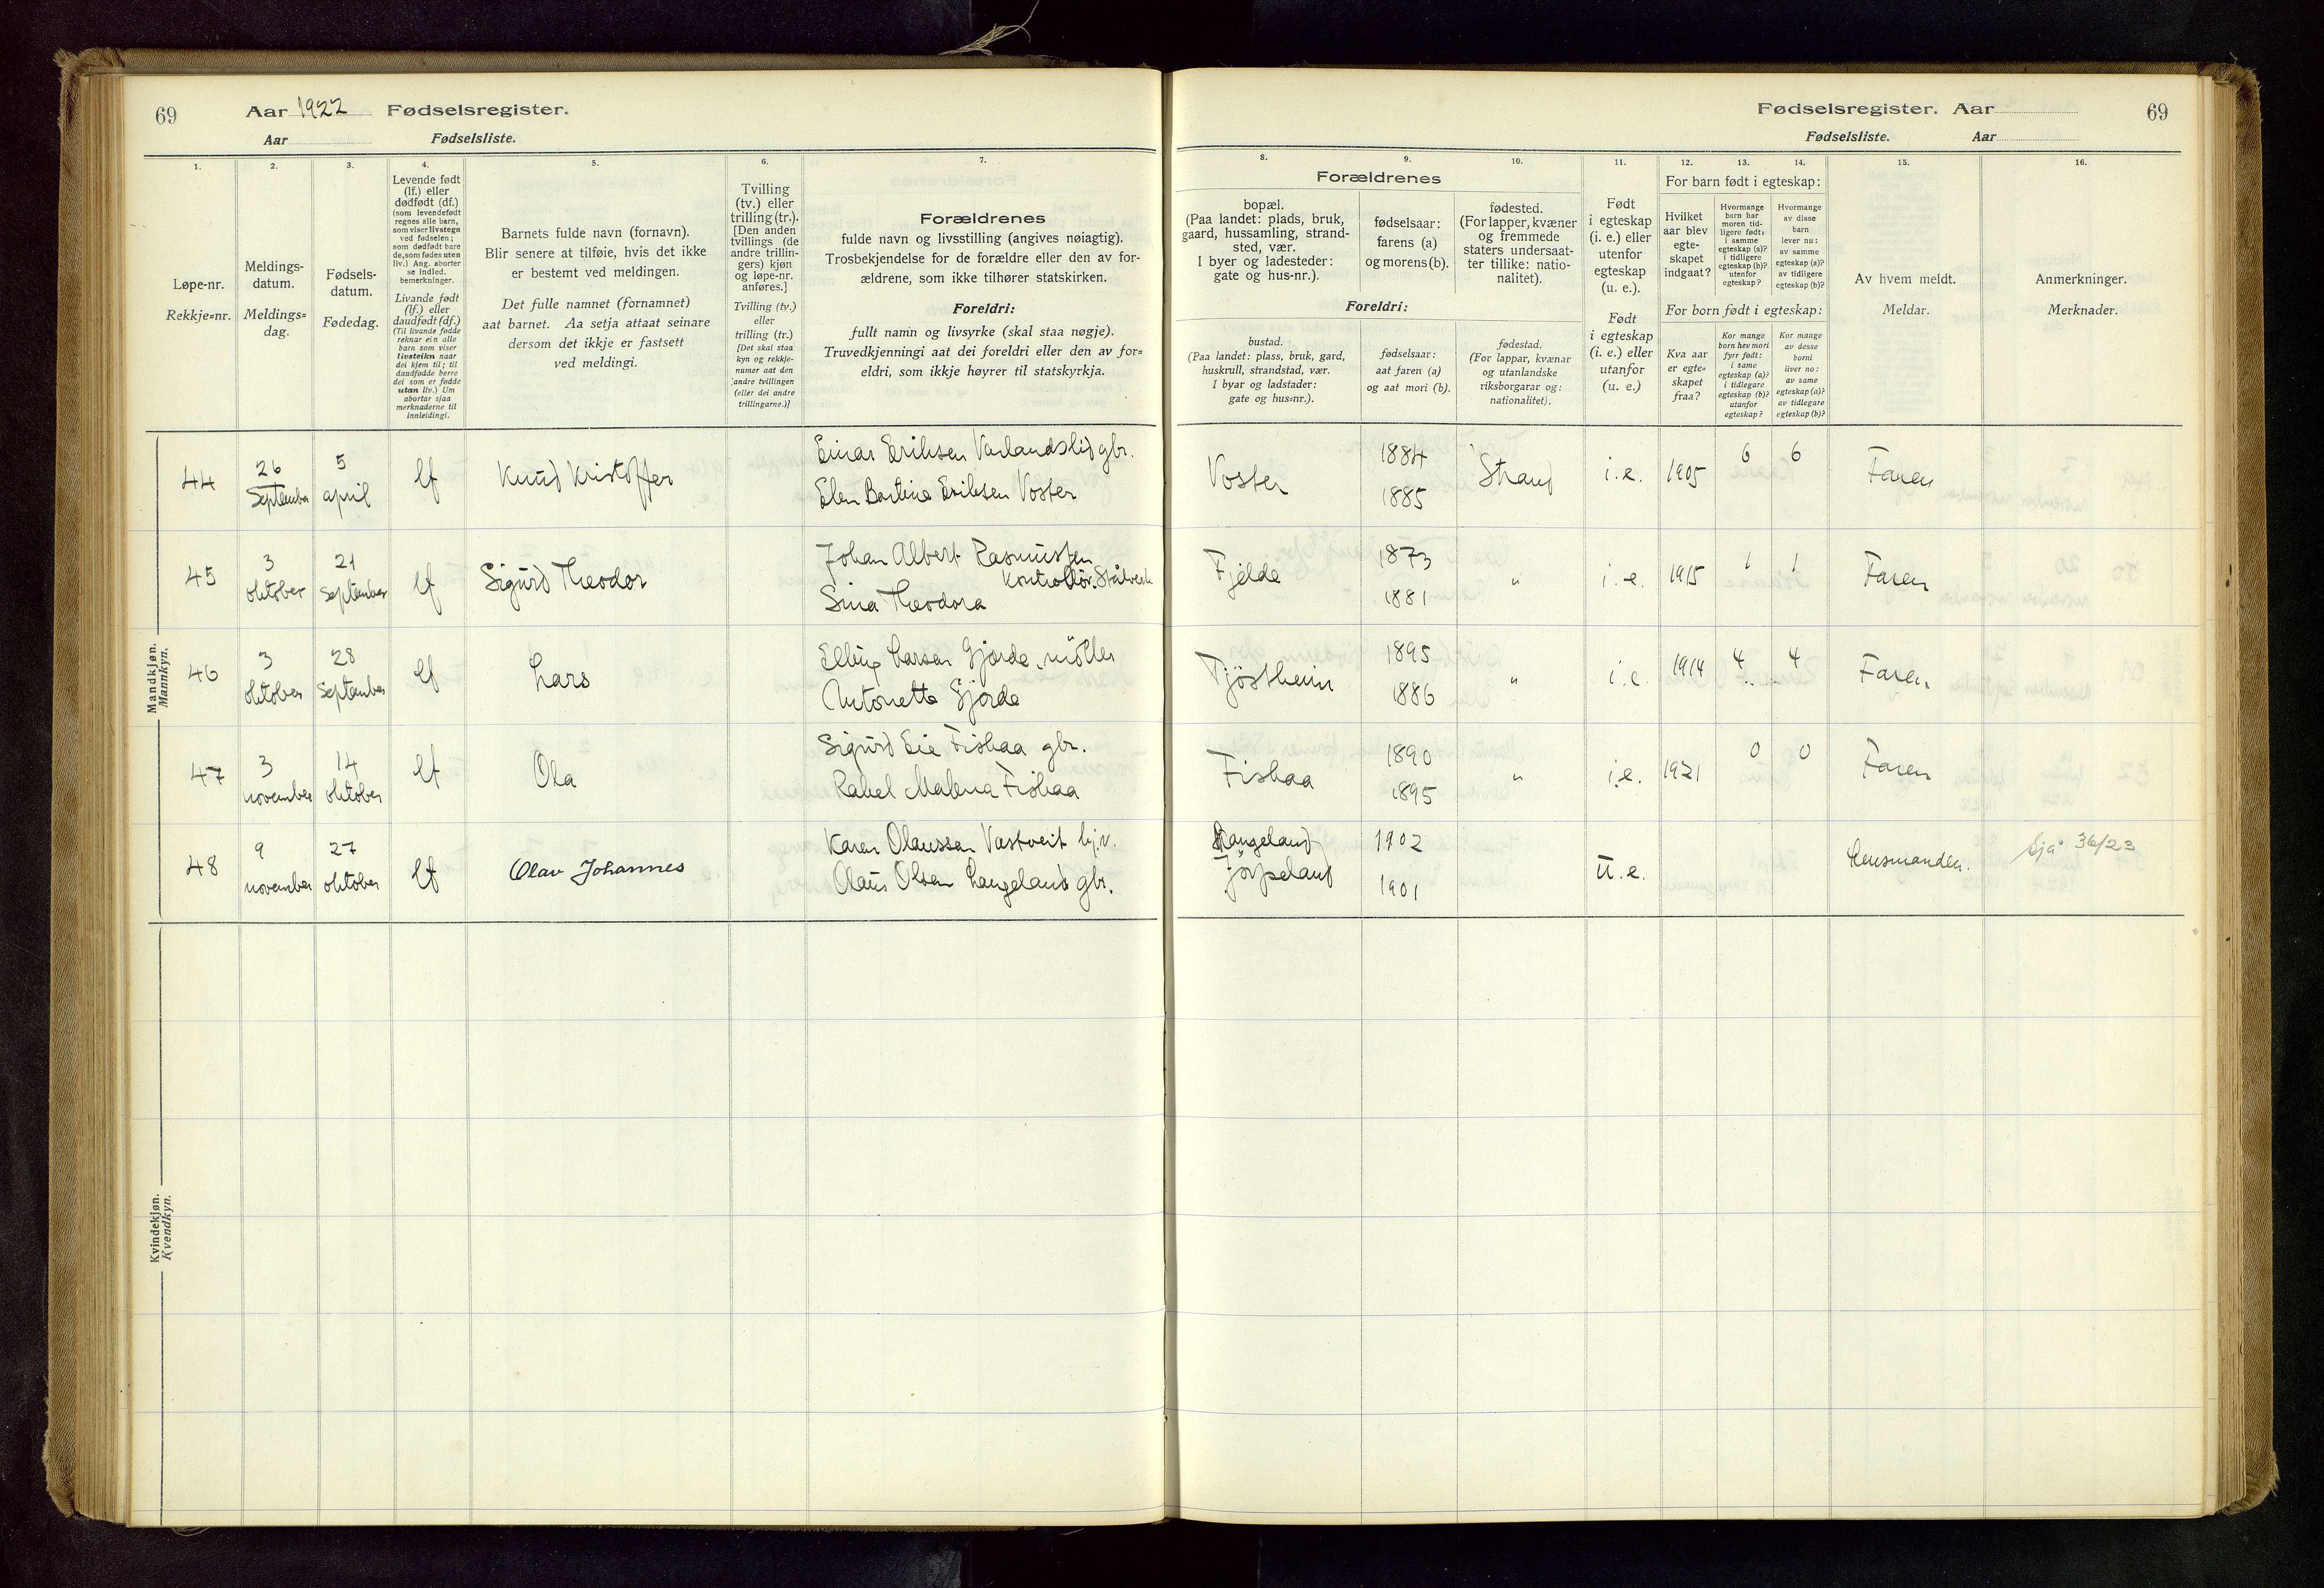 69 Aar 1922 Fødselsregister.
Aar Fødselsliste.
Fødselsregister. Aar 69
Fødselsliste. Aar
1.
Løpe-nr.
Rekkje=nr.
2.
Meldings-
datum.
Meldings=
dag.
3.
Fødsels-
datum.
Fødedag.
4.
Levende født
(lf.) eller
dødfødt (df.)
(som levendefødt
regnes alle barn,
som viser livstegn
ved fødselen;
som dødfødt bare
de, som fødes uten
liv.) Ang. aborter
se indled.
bemerkninger.
Livande født
(lf.) eller
daudfødt (df.)
(Til livande fødde
reknar ein alle
barn som viser
livsteikn naar
dei kjem til; til
daudfødde berre
dei som er fødde
utan liv.) Um
abortar sjaa
merknaderne til
innleidingi.
5.
Barnets fulde navn (fornavn).
Blir senere at tilføie, hvis det ikke
er bestemt ved meldingen.
Det fulle namnet (fornamnet)
aat barnet. Aa setja attaat seinare
dersom det ikkje er fastsett
ved meldingi.
6.
Tvilling
(tv.) eller
trilling (tr.).
[Den anden
tvillings (de
andre trillin-
gers) kjøn
og løpe-nr.
anføres.]
Tvilling (tv.)
eller
trilling (tr.)
[Det skal staa
kyn og rekkje-
numer aat den
andre tvillingen
(eller dei andre
trillingarne.)]
7.
Forældrenes
fulde navn og livsstilling (angives nøiagtig).
Trosbekjendelse for de forældre eller den av for-
ældrene, som ikke tilhører statskirken.
Foreldri:
fullt namn og livsyrke (skal staa nøgje).
Truvedkjenningi aat dei foreldri eller den av for=
eldri, som ikkje høyrer til statskyrkja.
8.
Forældrenes
bopæl.
(Paa landet: plads, bruk,
gaard, hussamling, strand-
sted, vær.
I byer og ladesteder:
gate og hus-nr.).
Foreldri:
bustad.
(Paa landet: plass, bruk, gard,
huskrull, strandstad, vær.
I byar og ladstader:
gate og hus=nr.).
9.
fødselsaar:
farens (a)
og morens (b).
fødselsaar:
aat faren (a)
og aat mori (b).
10.
fødested.
(For lapper, kvæner
og fremmede
staters undersaat-
ter tillike: natio-
nalitet).
fødestad.
(For lappar, kvænar
og utanlandske
riksborgarar og:
nationalitet).
11.
Født
i egteskap
(i. e.) eller
utenfor
egteskap
(u. e.).
Født
i egteskap
(i. e.) eller
utanfor
(u. e.)
12. 13. 14.
For barn født i egteskap:
Hvilket
aar blev
egte-
skapet
indgaat?
Hvormange
barn har
moren tid-
ligere født:
i samme
egteskap (a)?
i tidligere
egteskap (b)?
utenfor
egteskap?
Hvormange
av disse
barn
lever nu:
av samme
egteskap (a)?
av tidligere
egteskap (b)?
For born født i egteskap:
Kva aar
er egte=
skapet
fraa?
Kor mange
born hev mori
fyrr født:
i same
egteskap (a)?
i tidlegare
egteskap (b)?
utanfor
egteskap?
Kor mange
av desse
borni
liver no:
av same
egteskap (a)?
av tidlegare
egteskap (b)?
15.
Av hvem meldt.
Meldar.
16.
Anmerkninger.
Merknader.
Mandkjøn.
Mannkyn.
44
26
September
5
april
lf
Knud Kristoffer
Einar Eriksen Varlandslid gbr.
Elen Bertine Eriksen Voster
Voster
1884
1885
Strand
i.e. 1905 6 6 Faren
45
3
oktober
21
September
lf
Sigurd Theodor
Johan Albert Rasmussen
Kontrollör. Stålverk
Sina Theodora
Fjelde
1873
1881
"
i.e. 1915 1 1 Faren
46
3
oktober
28
September
lf
Lars
Elling Larsen Gjerde, möller
Antonette Gjerde
Tjöstheim
1895
1886
"
i.e. 1914 4 4 Faren
47
3
november
14
oktober
lf
Ola
Sigurd Eie Fiskaa gbr.
Rakel Malena Fiskaa
Fiskaa
1890
1895
"
i.e. 1921 0 0 Faren
48
9
november
27
oktober
lf
Olav Johannes
Karen Olaussen Vastveit hj.v.
Olaus Olsen Langeland gbr.
Langeland
Jörpeland
1902
1901
u.e.
Lensmanden.
Sjå 36/23
Kvindekjøn.
Kvendkyn.